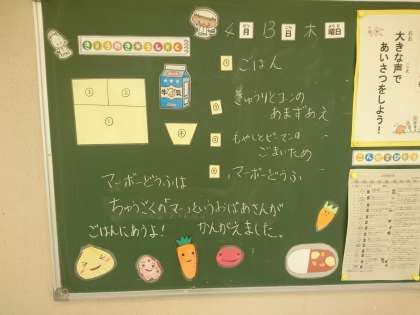 4月13日木曜日
きょうのきゅうしょく
① ごはん
② きゅうりとコーンの
あまずあえ
③ もやしとピーマンの
ごまいため
④ マーボーどうふ
① ② ③ ④
牛乳
マーボーどうふは
ちゅうごくの「マー」というおばあさんが
ごはんにあうよ! かんがえました。
大きな声で
あいさつをしよう!
こんだてひょう